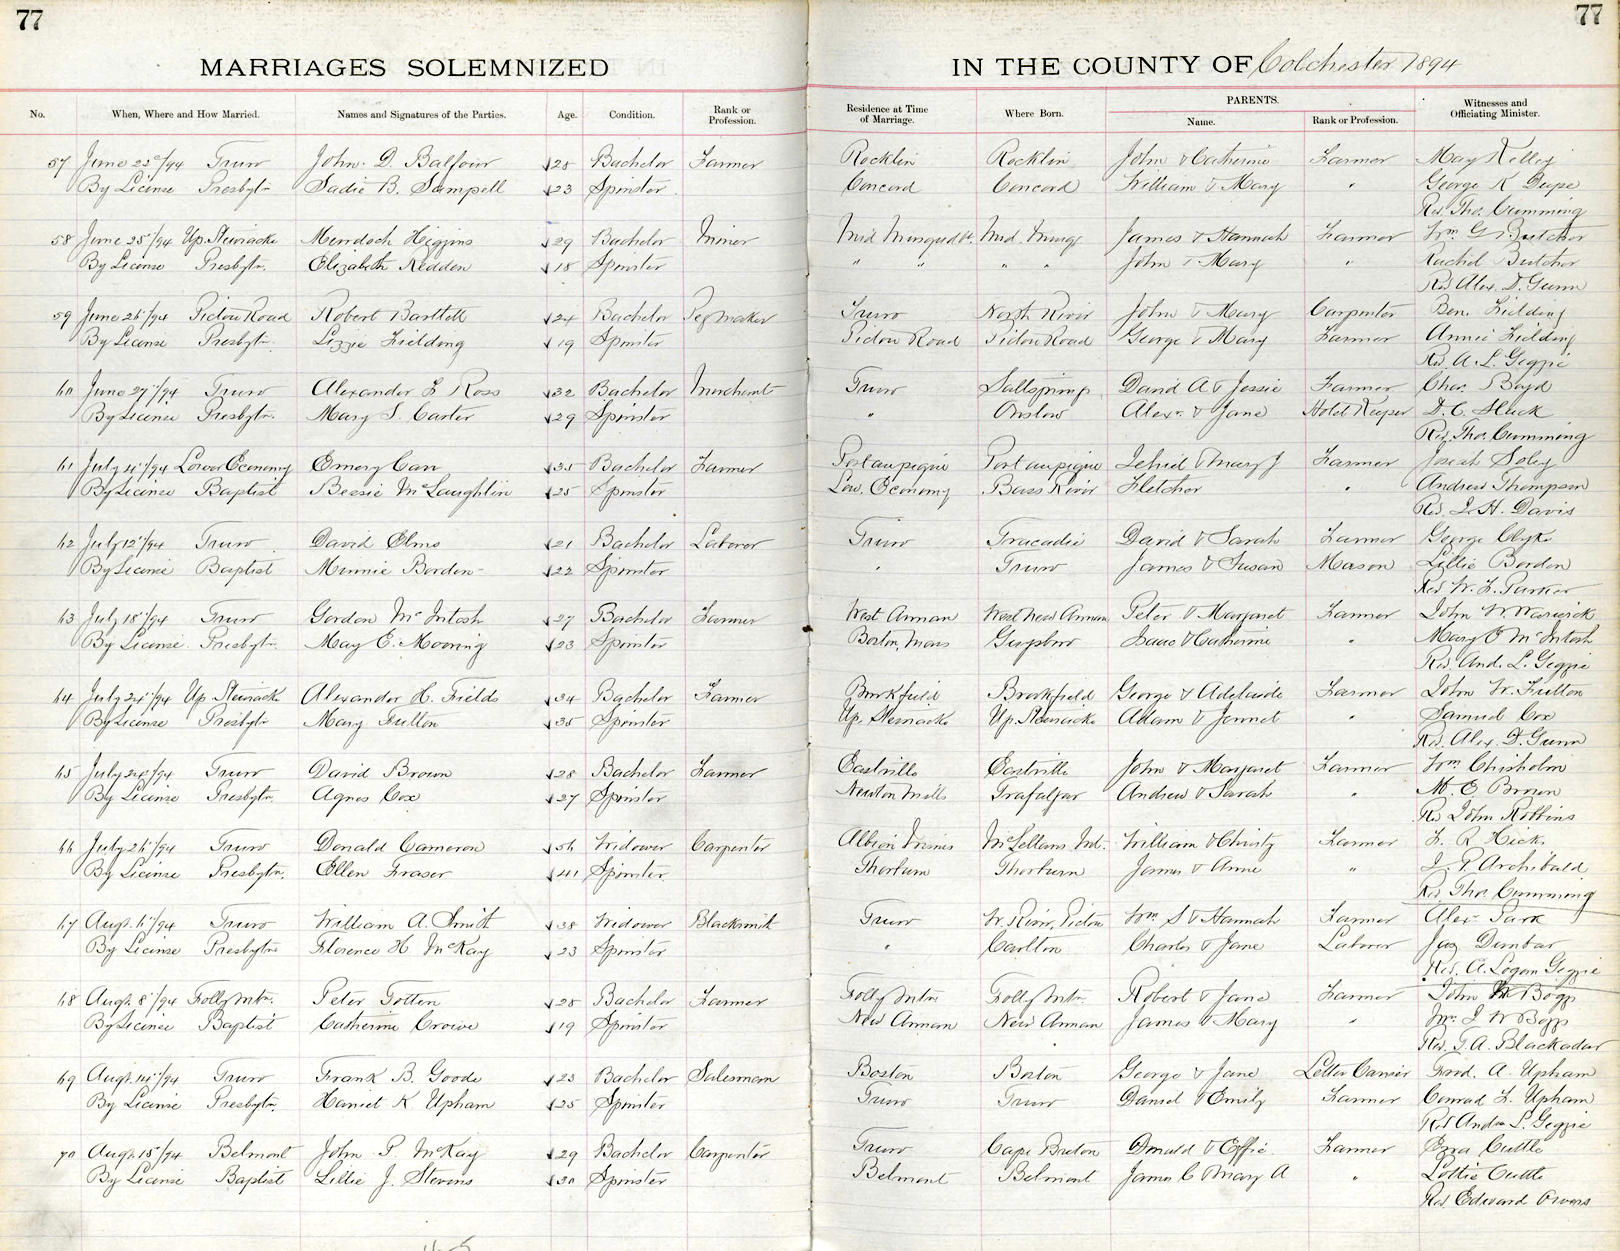 77
77
MARRIAGES SOLEMNIZED IN THE COUNTY OF Colchester 1894
No. When, Where and How Married. Names and Signatures of the Parties. Age. Condition. Rank or Profession. Residence at Time of Marriage. Where Born. PARENTS. Name. Rank or Profession. Witnesses and Officiating Minister.
57 June /94 Truro John. D. Balfour 28 Bachelor Farmer Rocklin Rocklin John & Catherine Farmer May Kelley
By License Presbytn. Sadie B. 23 Spinster Concord Concord William & Mary " George K
Rev. Thos. Cumming
58 June 25"/94 Up. Stewiacke Murdoch Higgins 29 Bachelor Miner Mid Mid. Musqd James & Hannah Farmer Wm G. Butcher
By License Presbytn. Elizabeth Nedden 18 Spinster " " " " John & Mary " Rachel Butcher
Rev Alex. D. Gunn
59 June 26"/94 Pictou Road Robert Bartlett 24 Bachelor Peg maker Truro North River John & Mary Carpenter Ben. Fielding
By License Presbytn. Lizzie Fielding 19 Spinster Pictou Road Pictou Road George & Mary Farmer Annie Fielding
Rev A. L. Geggie
60 June 27"/94 Truro Alexander F Ross 32 Bachelor Merchant Truro Saltsprings David A & Jessie Farmer Chas. Boyd
By License Presbytn. Mary S. Carter 29 Spinster " Onslow Alexr. & Jane Hotel Keeper D. C.
Rev. Thos. Cumming
61 July 4"/94 Lower Economy Emery Carr Bachelor Farmer Portaupique Portaupique & Mary J Farmer Josiah Soley
By License Baptist Bessie McLaughlin 25 Spinster Low. Economy Bass River Fletcher " Andrew Thompson
Rev. J. H. Davis
62 July 12"/94 Truro David Elms 21 Bachelor Laborer Truro Tracadie David & Sarah Farmer George Clyke
By License Baptist Minnie Borden 22 Spinster " Truro James & Susan Mason Lillie Borden
Rev W. F. Parker
63 July 18"/94 Truro Gordon McIntosh 27 Bachelor Farmer West Annan West New Annan Peter & Margaret Farmer John W. Warwick
By License. Presbytn. May E. Mooring 23 Spinster Boston, Mass Guysboro Isaac & Catherine " Mary O McIntosh
Rev. And. L. Geggie
64 July 24"/94 Up Stewiack Alexander H. Fields 34 Bachelor Farmer Brookfield Brookfield George & Adelaide Farmer John W. Fulton
By License Presbytn Mary Fulton 35 Spinster Up. Stewiacke Up. Stewiacke Adam & Jennet " Samuel Cox
Rev. Alex. D. Gunn
65 July 24"/94 Truro David Brown 28 Bachelor Farmer Eastville Eastville John & Margaret Farmer Wm Chisholm
By License Presbytn. Agnes Cox 27 Spinster Newton Mills Trafalgar Andrew & Sarah " M. E Brown
Rev John Robbins
66 July 26"/94 Truro Donald Cameron 56 Widower Carpenter Albion Mines McLellans Mt. William & Christy Farmer F. R Hicks
By License Presbytn. Ellen Fraser 41 Spinster Thorburn Thorburn James & Anne " J. P. Archibald
Rev. Thos. Cumming
67 Augt. 6"/94 Truro William A. Smith 38 Widower Blacksmith Truro W. River, Pictou Wm S & Hannah Farmer Alex. Park
By License Presbytn Florence H McKay 23 Spinster " Carlton Charles & Jane Laborer Jas Dunbar
Rev. A. Logan Geggie
68 Augt. 8"/94 Folly Mtn. Peter Totten 28 Bachelor Farmer Folly Mtn Folly Mtn. Robert & Jane Farmer John W Boggs
By License Baptist Catherine Crowe 19 Spinster New Annan New Annan James & Mary " Mrs. J W Boggs
Rev. T. A. Blackadar
69 Augt. 14"/94 Truro Frank B. Goode 23 Bachelor Salesman Boston Boston George & Jane Letter Carrier Fred. A. Upham
By License Presbytn. Harriet K Upham 25 Spinster Truro Truro Daniel & Emily Farmer Conrad F. Upham
Rev Andw L. Geggie
70 Augt. 15"/94 Belmont John P. McKay 29 Bachelor Carpenter Truro Cape Breton Donald & Effie Farmer Ezra Cuttle
By License Baptist Lillie J. Stevens 30 Spinster Belmont Belmont James C Mary A " Lottie Cuttle
Rev. Edward Owens